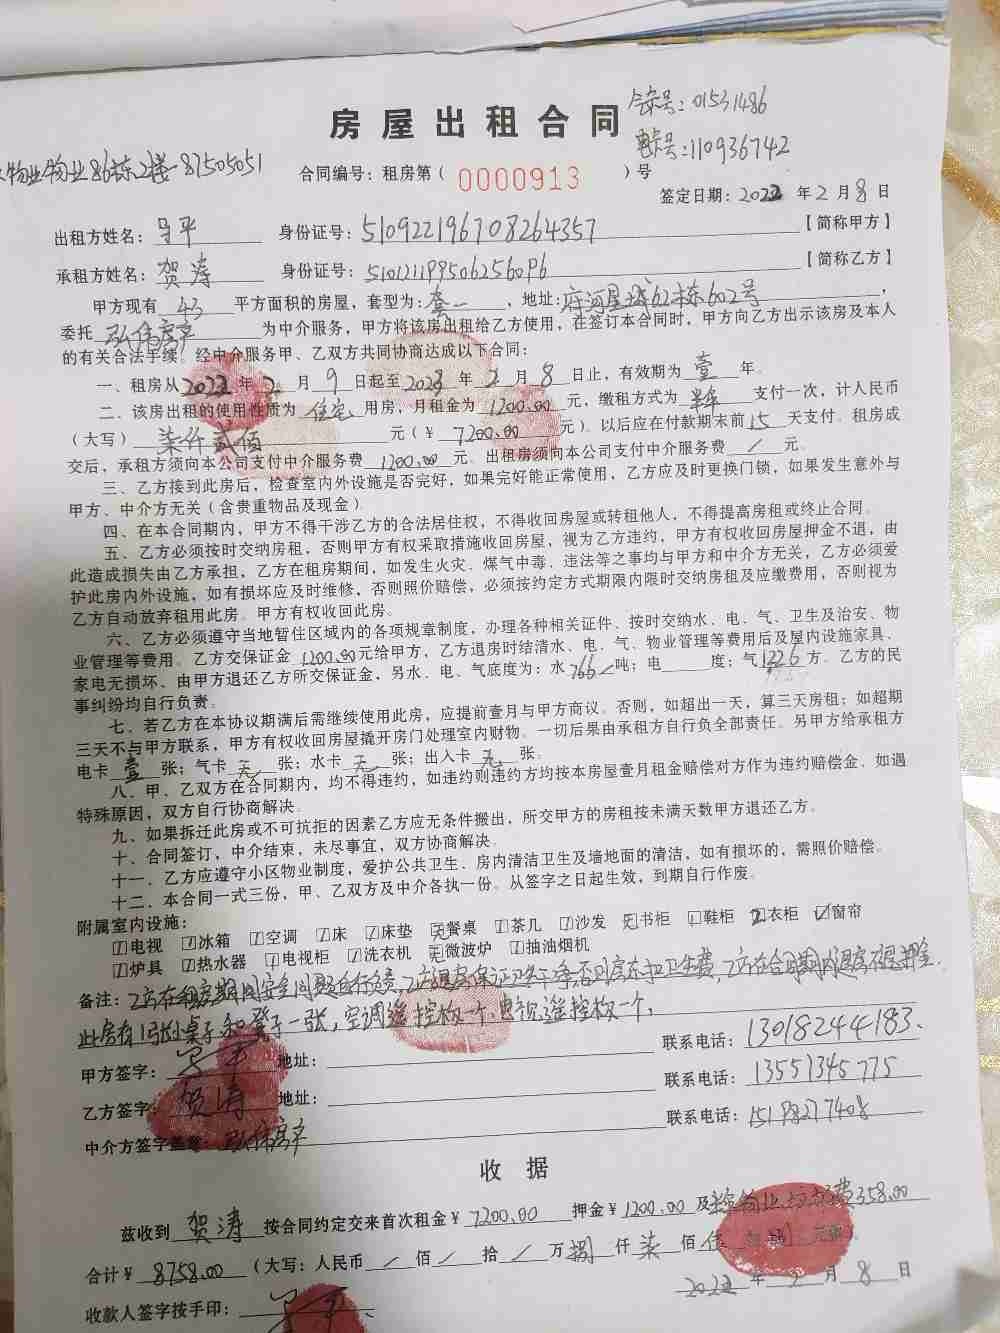 房屋出租合同
气表号：01531486
电卡号：110936742
物业物业86栋2楼-87505051
合同编号：租房第（ 0000913 ）号
签定日期：2022 年 2 月 8 日
出租方姓名： 马平 身份证号：510922196708264357 【简称甲方】
承租方姓名： 贺涛 身份证号： 【简称乙方】
甲方现有 43 平方面积的房屋，套型为：套一 ，地址：府河星城62栋602号 ，
委托 弘伟房产 为中介服务，甲方将该房出租给乙方使用，在签订本合同时，甲方向乙方出示该房及本人
的有关合法手续。经中介服务甲、乙双方共同协商达成以下合同：
一、租房从 2022 年 2 月 9 日起至 2023 年 2 月 8 日止，有效期为 壹 年。
二、该房出租的使用性质为 住宅 用房，月租金为 1200.00 元，缴租方式为 半年 支付一次，计人民币
（大写） 柒仟贰佰 元（￥ 7200.00 元）。以后应在付款期末前 15 天支付。租房成
交后，承租方须向本公司支付中介服务费 1200.00 元。出租房须向本公司支付中介服务费 / 元。
三、乙方接到此房后，检查室内外设施是否完好，如果完好能正常使用，乙方应及时更换门锁，如果发生意外与
甲方、中介方无关（含贵重物品及现金）
四、在本合同期内，甲方不得干涉乙方的合法居住权，不得收回房屋或转租他人，不得提高房租或终止合同。
五、乙方必须按时交纳房租，否则甲方有权采取措施收回房屋，视为乙方违约，甲方有权收回房屋押金不退，由
此造成损失由乙方承担，乙方在租房期间，如发生火灾、煤气中毒、违法等之事均与甲方和中介方无关，乙方必须爱
护此房内外设施，如有损坏应及时维修，否则照价赔偿，必须按约定方式期限内限时交纳房租及应缴费用，否则视为
乙方自动放弃租用此房。甲方有权收回此房。
六、乙方必须遵守当地暂住区域内的各项规章制度，办理各种相关证件、按时交纳水、电、气、卫生及治安、物
业管理等费用。乙方交保证金 1200.00 元给甲方，乙方退房时结清水、电、气、物业管理等费用后及屋内设施家具、
家电无损坏、由甲方退还乙方所交保证金，另水、电、气底度为：水 766 吨；电 度；气 1226 方。乙方的民
事纠纷均自行负责。
七、若乙方在本协议期满后需继续使用此房，应提前壹月与甲方商议。否则，如超出一天，算三天房租；如超期
三天不与甲方联系，甲方有权收回房屋撬开房门处理室内财物。一切后果由承租方自行负全部责任。另甲方给承租方
电卡 壹 张；气卡 无 张；水卡 无 张；出入卡 无 张。
八、甲、乙双方在合同期内，均不得违约，如违约则违约方均按本房屋壹月租金赔偿对方作为违约赔偿金。如遇
特殊原因，双方自行协商解决。
九、如果拆迁此房或不可抗拒的因素乙方应无条件搬出，所交甲方的房租按未满天数甲方退还乙方。
十、合同签订，中介结束，未尽事宜，双方协商解决。
十一、乙方应遵守小区物业制度，爱护公共卫生、房内清洁卫生及墙地面的清洁，如有损坏的，需照价赔偿。
十二、本合同一式三份，甲、乙双方及中介各执一份。从签字之日起生效，到期自行作废。
附属室内设施：
1电视 1冰箱 1空调 1床 1床垫 无餐桌 1茶几 1沙发 无书柜 1鞋柜 2衣柜 ✓窗帘
1炉具 1热水器 1电视柜 1洗衣机 无微波炉 1抽油烟机
备注：乙方在租房期间安全问题自行负责，乙方退房保证卫生干净，否则房东扣卫生费，乙方在合同期内退房不退押金。
此房有1张小桌子，和凳子一张，空调遥控板一个，电视遥控板一个。
甲方签字： 马平 地址： 联系电话：13018244183.
乙方签字： 贺涛 地址： 联系电话：13551345775
中介方签字盖章：弘伟房产 联系电话：15198277408
收 据
兹收到 贺涛 按合同约定交来首次租金￥ 7200.00 押金￥1200.00 及 358.00
合计￥ 8758.00 （大写：人民币 / 佰 / 拾 / 万 捌 仟 柒 佰 伍 拾 捌 元整）
2022 年 2 月 8 日
收款人签字按手印：